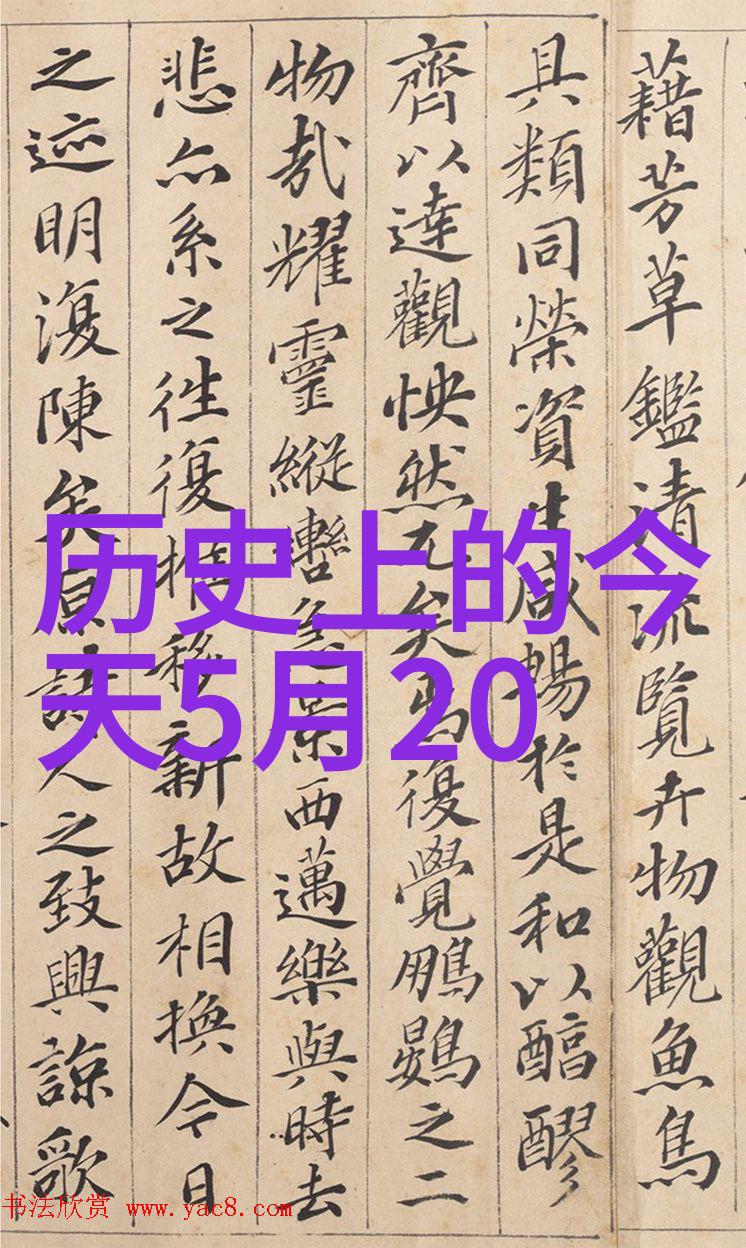 藉芳草鑑清流覧卉物觀魚鳥
具類同榮資生咸暢於是和以醇醪
齊以達觀怏然兀矣焉復覺鵬鷃之二
物哉耀靈縱轡急景西邁樂與時去
悲亦系之往復推移新故相換今日
之迹明復陳矣原詩人之致興諒歌
历史上的今
天5月20
书法欣赏 www.yac8.com